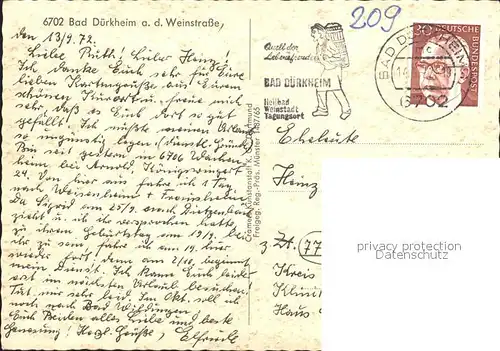 6702 Bad Dürkheim a. d. Weinstraße,
den 13/9. 72.
Liebe Ruth! Lieber Heinz!
Ich danke Euch sehr für Eure
lieben Kartengrüße aus Eurem
schönen Kurort u. freue mich
sehr, daß es Euch dort so gut
gefällt! Ich mußte meinen Urlaub
so ungünstig legen (dienstl. Gründe)
Bin seit gestern in 6706 Wachen-
heim bei Arnold, Königswingert
24. Von hier aus fahre ich 1 Tag
nach Weisenheim +
Da Sigrid am 25/9. nach Dietzenbach
zieht u. ich ihr versprochen hatte,
zu ihrem Geburtstag am 19/9. bei
ihr zu sein, fahre ich am 19. hier
wieder fort! denn am 2/10. beginnt
mein Dienst. Ich kann Euch leider
erst im nächsten Urlaub besuchen!
Tut mir sehr leid. Im Okt. soll ich
noch nach Bad Wildungen.
Euch Beiden alles Liebe und beste
Genesung! Herzl. Grüße, Elfriede
Cramers Kunstanstalt K. Dortmund
Freigeg. Reg.-Präs. Münster 1487/65
209
Quell der
Lebensfreude
BAD DÜRKHEIM
Heilbad
Weinstadt
Tagungsort
BAD DÜRKHEIM
c
6702
30
DEUTSCHE
BUNDESPOST
Eheleute
Heinz
(77
Kreis
Haus
Copyright protected
Datenschutz